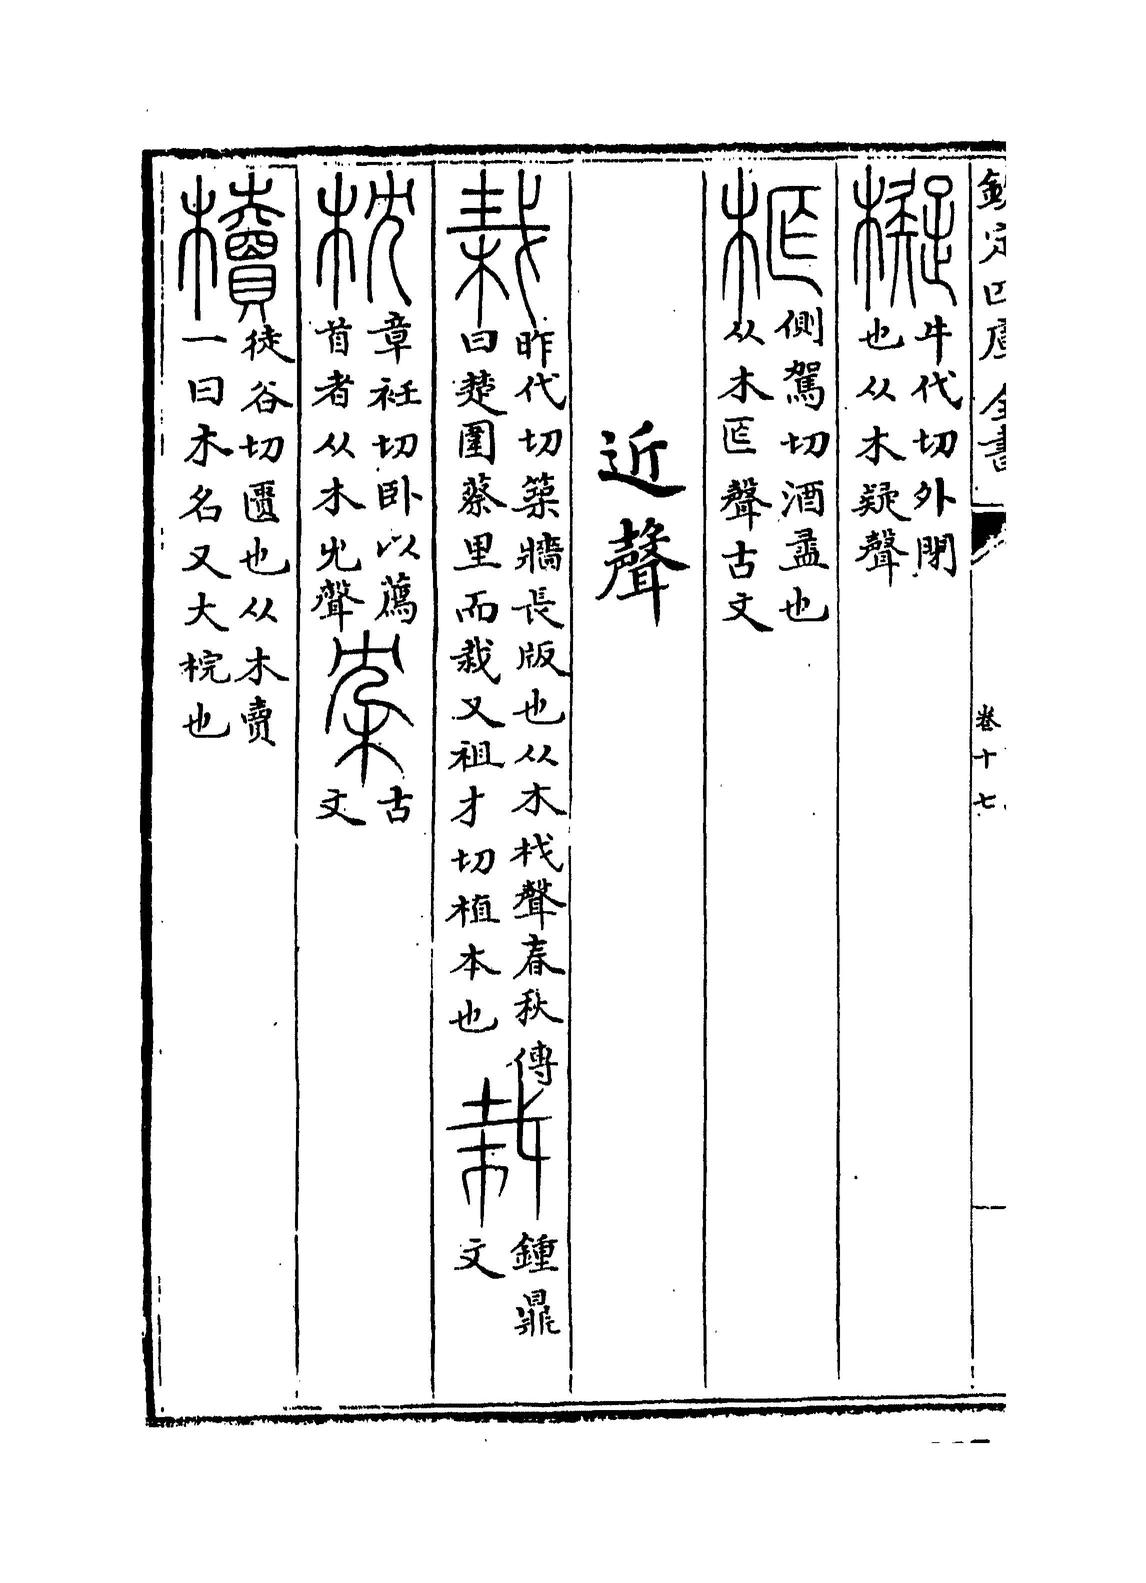 欽定四庫全書
卷十七
牛代切外閉
也从木疑聲
側駕切酒盝也
从木聲古文
近聲
栽
昨代切築牆長版也从木𢦏聲春秋傳
曰楚圍蔡里而栽又祖才切植本也
栽
鍾鼎
文
枕
章衽切卧以薦
首者从木冘聲
枕
古
文
櫝
徒谷切匱也从木賣
一曰木名又大梡也